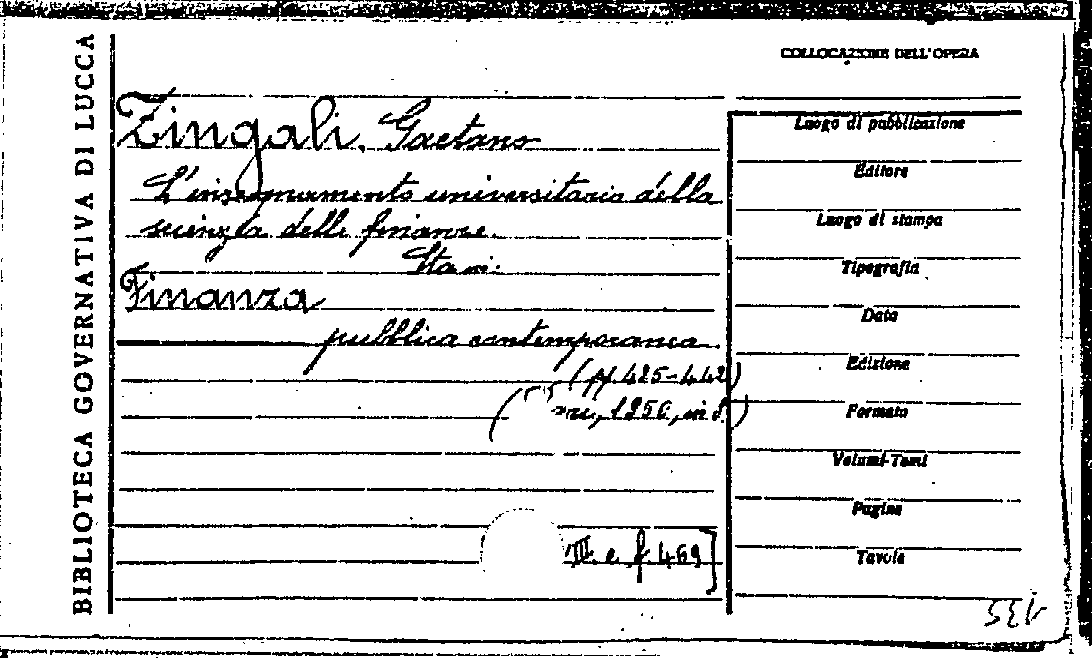 BIBLIOTECA GOVERNATIVA DI LUCCA
COLLOCAZIONE DELL'OPERA
Zingali, Gaetano
L'insegnamento universitario della
scienza delle finanze.
Finanza
pubblica contemporanea.
(pp. 425-442)
( 1950, in 8.)
III. e. f. 469]
Luogo di pubblicazione
Editore
Luogo di stampa
Tipografia
Data
Edizione
Formato
Volumi-Tomi
Pagine
Tavole